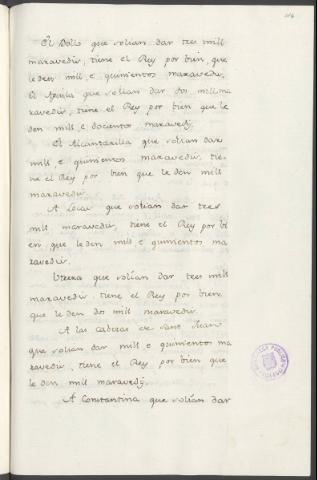 El Bollo que solian dar tres mill
maravedis, tiene el Rey por bien, que
le den mill, e quinientos maravedis.
El Aguila que solian dar dos mill ma
ravedis, tiene el Rey por bien que le
den mill, e docientos maravedis.
El Alcantarilla que solian dar
mill e quinientos maravedis, tie-
ne el Rey por bien que le den mill
maravedis.
A Locar que solian dar tres
mill maravedis, tiene el Rey por bi
en, que le den mill e quinientos ma
ravedis.
Utrera que solian dar tres mill
maravedis tiene el Rey por bien,
que le den dos mill maravedis.
A las caderas de Sant Juan
que solian dar mill e quinientos ma
ravedis, tiene el Rey por bien que
le den mill maravedis.
A Constantina que solian dar